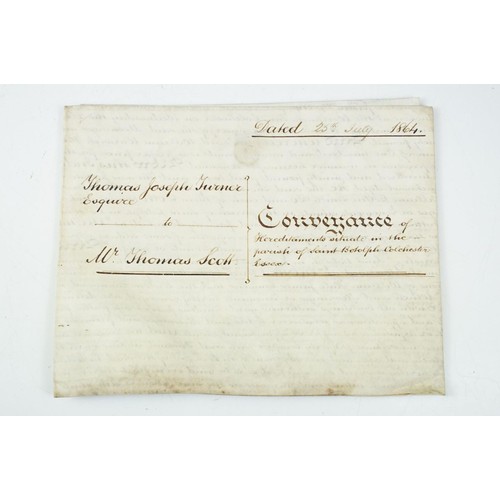 Dated 25th July 1864.
Thomas Joseph Turner
Esquire
to
Mr. Thomas Scott
Conveyance of
Hereditaments situate in the
parish of Saint Botolph Colchester
Essex.